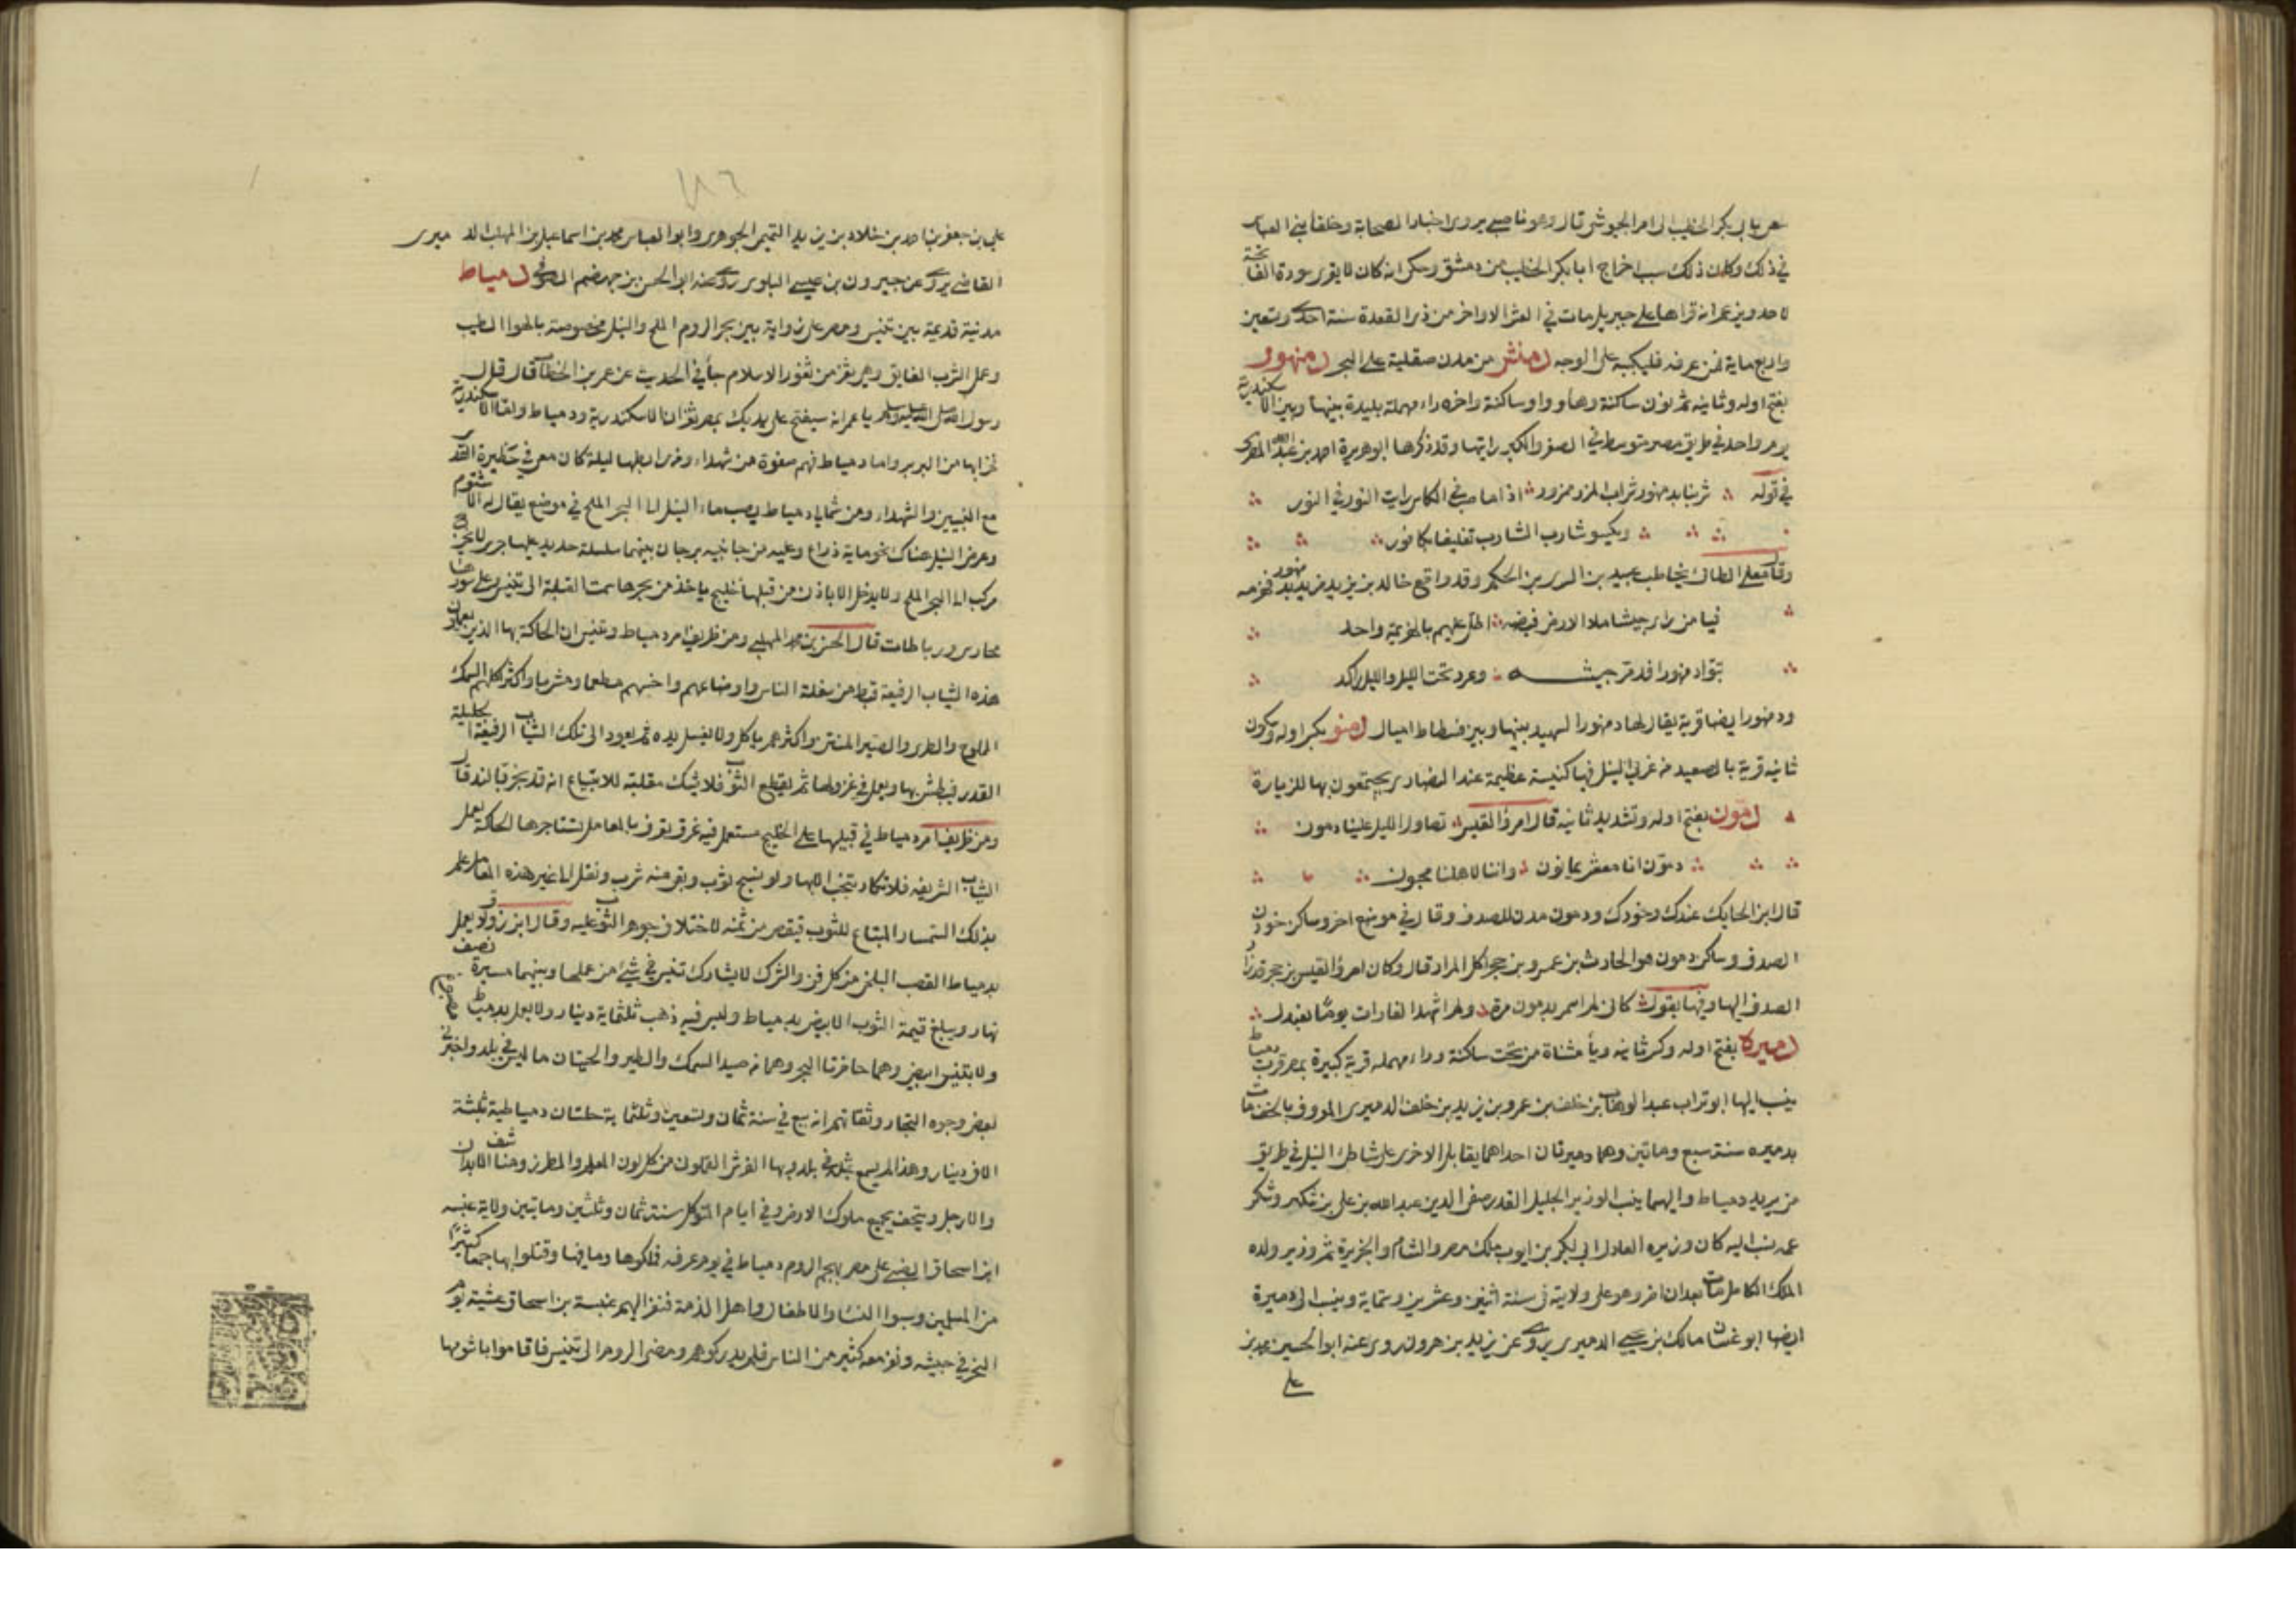 هرباب بكر الخطيب الى امير الجيوش قال وهو ناصبى يروى اخبار الصحابة وخلفا بنى العباس
فى ذلك وكان ذلك سبب اخراج ابا بكر الخطيب من دمشق وحكى انه كان لا يقرى سورة الفاتحة
لاحد ويزعم انه قراها على جبريل مات فى العشر الاواخر من ذى القعدة سنة احدى وتسعين
واربع ماية فمن عرفه فليكتبه على الوجه دمنش من مدن صقلية على البحر دمنهور
بفتح اوله وثانيه ثم نون ساكنة وهاء وواو ساكنة واخره راء مهملة بليدة بينها وبين الاسكندرية
يوم واحد فى طريق مصر متوسط فى الصغر والكبر رايتها وقد ذكرها ابو هريرة احمد بن عبد الله المصرى
فى قوله شربنا بدمنهور شراب المزر ممزور اذا ما صب فى الكاس رايت النور فى النور
ويكسو شارب الشارب تغليفا بكافور
وقال معلى الطائى يخاطب عبيد بن السرى بن الحكم وقد واقع خالد بن يزيد بن مزيد بدمنهور فهزمه
فيا من راى جيشا ملا الارض فيضه اطل عليهم بالهزيمة واحد
تبوا دمنهورا فدمر جيشه وعرد تحت الليل والليل راكد
ودمنهور ايضا قرية يقال لها دمنهور الشهيد بينها وبين فسطاط اميال دمنو بكسر اوله وسكون
ثانيه قرية بالصعيد من غربى النيل فيها كنيسة عظيمة عند النصارى يجتمعون بها للزيارة
دمون بفتح اوله وتشديد ثانيه قال امرؤ القيس تطاول الليل علينا دمون
دمون انا معشر يمانون واننا لاهلنا محبون
قال ابن الحايك عندك وخودك ودمون مدن للصدف وقال فى موضع اخر وساكن خودون
الصدف وساكن دمون هو الحارث بن عمرو بن حجر اكل المرار قال وكان امرؤ القيس بن حجر قد زار
الصدف اليها وفيها يقول كانى لم اسمر بدمون مرة ولم اشهد الغارات يوما بعندل
دميرة بفتح اوله وكسر ثانيه وياء مثناة من تحت ساكنة وراء مهمله قرية كبيرة بمصر قرب دمياط
ينسب اليها ابو تراب عبد الوهاب بن خلف بن عمرو بن يزيد بن خلف الدميرى المعروف بالخف مات
بدميره سنة سبع وماتين وهما دميرتان احداهما يقابل الاخرى على شاطئ النيل فى طريق
من يريد دمياط واليهما ينسب الوزير الجليل القدر صفى الدين عبد الله بن على بن شكر وشكر
عمه نسب اليه كان وزيره العادل ابى بكر بن ايوب ملك مصر والشام والجزيرة ثم وزير ولده
الملك الكامل مات بعد ان اضر وهو على ولايته فى سنة اثنين وعشرين وستماية وينسب الى دميرة
ايضا ابو غسان مالك بن يحيى الدميرى يروى عن يزيد بن هرون روى عنه ابو الحسين محمد بن
على
١٨٦
على بن جعفر بن احمد بن خلاد بن يزيد التميمى الجوهرى وابو العباس محمد بن اسماعيل بن المهلب الدميرى
القاضى يروى عن جيرون بن عيسى البلوى روى عنه ابو الحسن بن جهضم الصوفى دمياط
مدنية قديمة بين تنيس ومصر على زواية بين بحر الروم الملح والنيل مخصوصة بالهوا الطيب
وعمل الشرب الفايق وهى ثغر من ثغور الاسلام جاء فى الحديث عن عمر بن الخطاب قال قال
رسول الله صلى الله عليه وسلم يا عمر انه سيفتح على يديك بمصر ثغران الاسكندرية ودمياط ولقا الاسكندرية
خرابها من البربر واما دمياط فهم صفوة من شهداء ومن رابطها ليلة كان معى فى حظيرة القدس
مع النبيين والشهداء ومن شمالى دمياط يصب ماء النيل الى البحر الملح فى موضع يقال له الاشتوم
وعرض النيل هناك نحو ماية ذراع وعليه من جانبيه برجان بينهما سلسلة حديد عليها حرس لا يخرج
مركب الى البحر الملح ولا يدخل الا باذن من قبلها خليج ياخذ من بحرها سمت القبلة الى تنيس وعلى سورها
محارس ورباطات قال الحسن بن محمد المهلبى ومن ظريف امر دمياط وتنيس ان الحاكة بها الذين يعملون
هذه الثياب الرفيعة قبط من سفلة الناس واوضاعهم واخسهم مطعما ومشربا واكثر اكلهم السمك
المملوح والطرى والصير المنتن واكثرهم ياكل ولا يغسل يده ثم يعود الى تلك الثياب الرفيعة الجليلة
القدر فيبطش بها ويعمل فى غزولها ثم يقطع الثوب فلا يشك مقلبه للابتياع انه قد بخر بالند قال
ومن ظريف امر دمياط فى قبليها على الخليج مستعمل فيه غرف تعرف بالمعامل يستاجرها الحاكة لعمل
الثياب الشريفه فلا تكاد تنجب الا بها ولو نسج ثوب وبقى منه شبر ونقل الى غير هذه المعامل علم
بذلك السمسار المبتاع للثوب فينقص من ثمنه لاختلاف جوهر الثوب عليه وقال ابن زولاق يعمل
بدمياط القصب البلخى من كل فن والشرب لا يشارك تنيس فى شئ من عملها وبينهما مسيرة نصف
نهار ويبلغ قيمة الثوب الابيض بدمياط وليس فيه ذهب ثلثماية دينار ولا يعمل بدمياط مصبوغ
ولا بتنيس ابيض وهما حاضرتا البحر وهما من صيد السمك والطير والحيتان ما ليس فى بلد واخبرنى
بعض وجوه التجار وثقاتهم انه بيع فى سنة ثمان وتسعين وثلثماية حلتان دمياطية بثلثة
الاف دينار وهذا لم يسمع بمثله فى بلد وبها الفرش القلمون من كل لون المعلم والمطرز ومنشف الابدان
والارجل ويتحف بجميع ملوك الارض وفى ايام المتوكل سنة ثمان وثلثين وماتين ولاية عنبسه
ابن اسحاق الضبى على مصر هجم الروم دمياط فى يوم عرفه فملكوها وما فيها وقتلوا بها جمعا كثيرا
من المسلمين وسبوا النساء والاطفال واهل الذمة فنفر اليهم عنبسة بن اسحاق عشية يوم
النحر فى جيشه ونفر معه كثير من الناس فلم يدركوهم ومضى الروم الى تنيس فاقاموا باشتومها